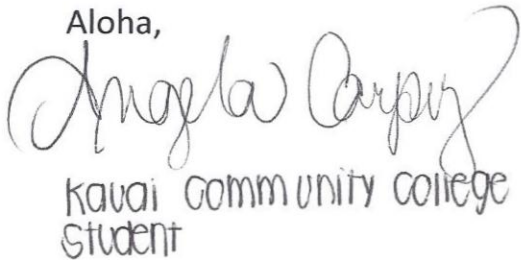 Aloha,
Angela Carpiz
Kauai Community College
Student